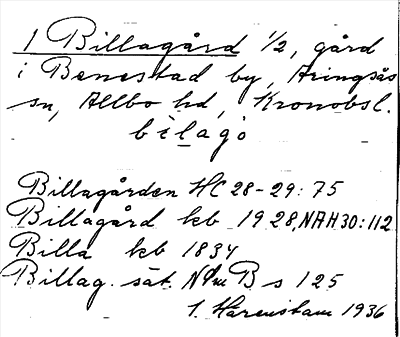 1 Billagård 1/2, gård
i Benestad by, Aringsås
sn, Allbo hd, Kronobsl.
bìlagò
Billagården HC 28-29: 75
Billagård kb 1928, NAH30:112
Billa kb 1834
Billag. sät. B s 125
1. Härenstam 1936